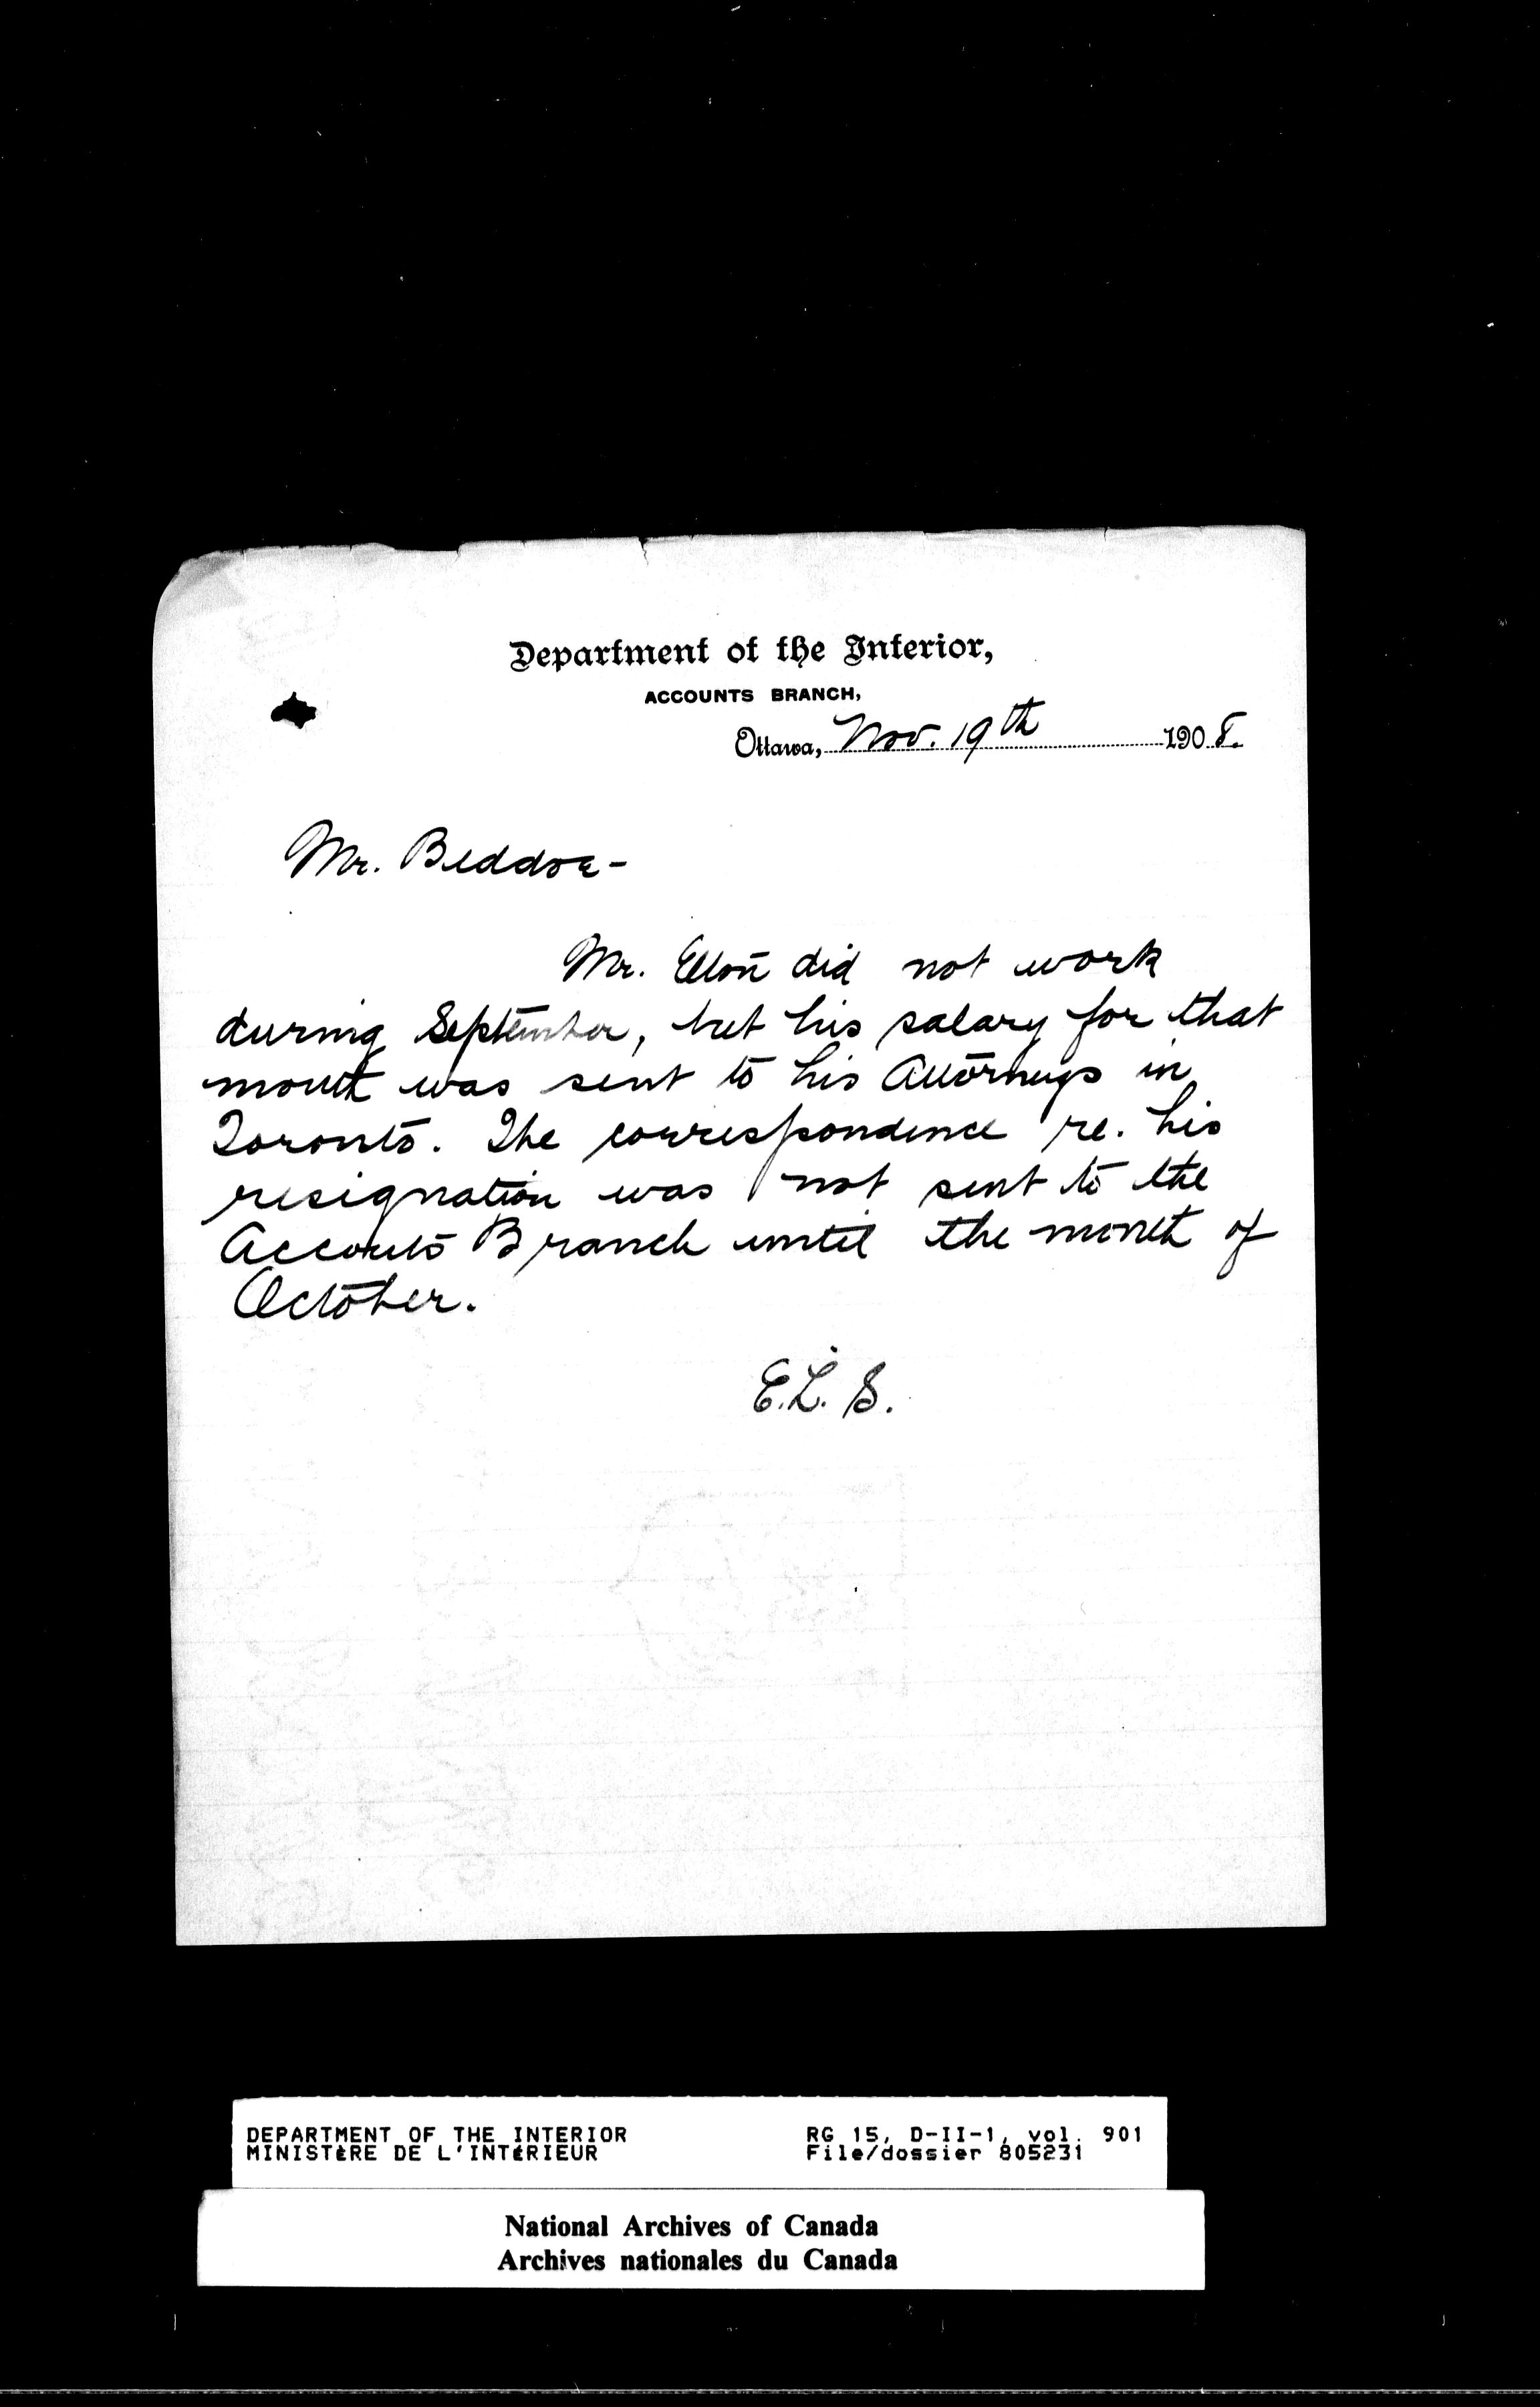 Department of the Interior,
ACCOUNTS BRANCH,
Ottawa, Nov. 19th 1908.
Mr. Beddoe-
Mr. did not work
during September, but his salary for that
month was sent to his Attorneys in
Toronto. The correspondence re. his
resignation was not sent to the
Accounts Branch until the month of
October.
E.L.S.
DEPARTMENT OF THE INTERIOR RG 15, D-II-1, vol. 901
MINISTÈRE DE L'INTÉRIEUR File/dossier 805231
National Archives of Canada
Archives nationales du Canada